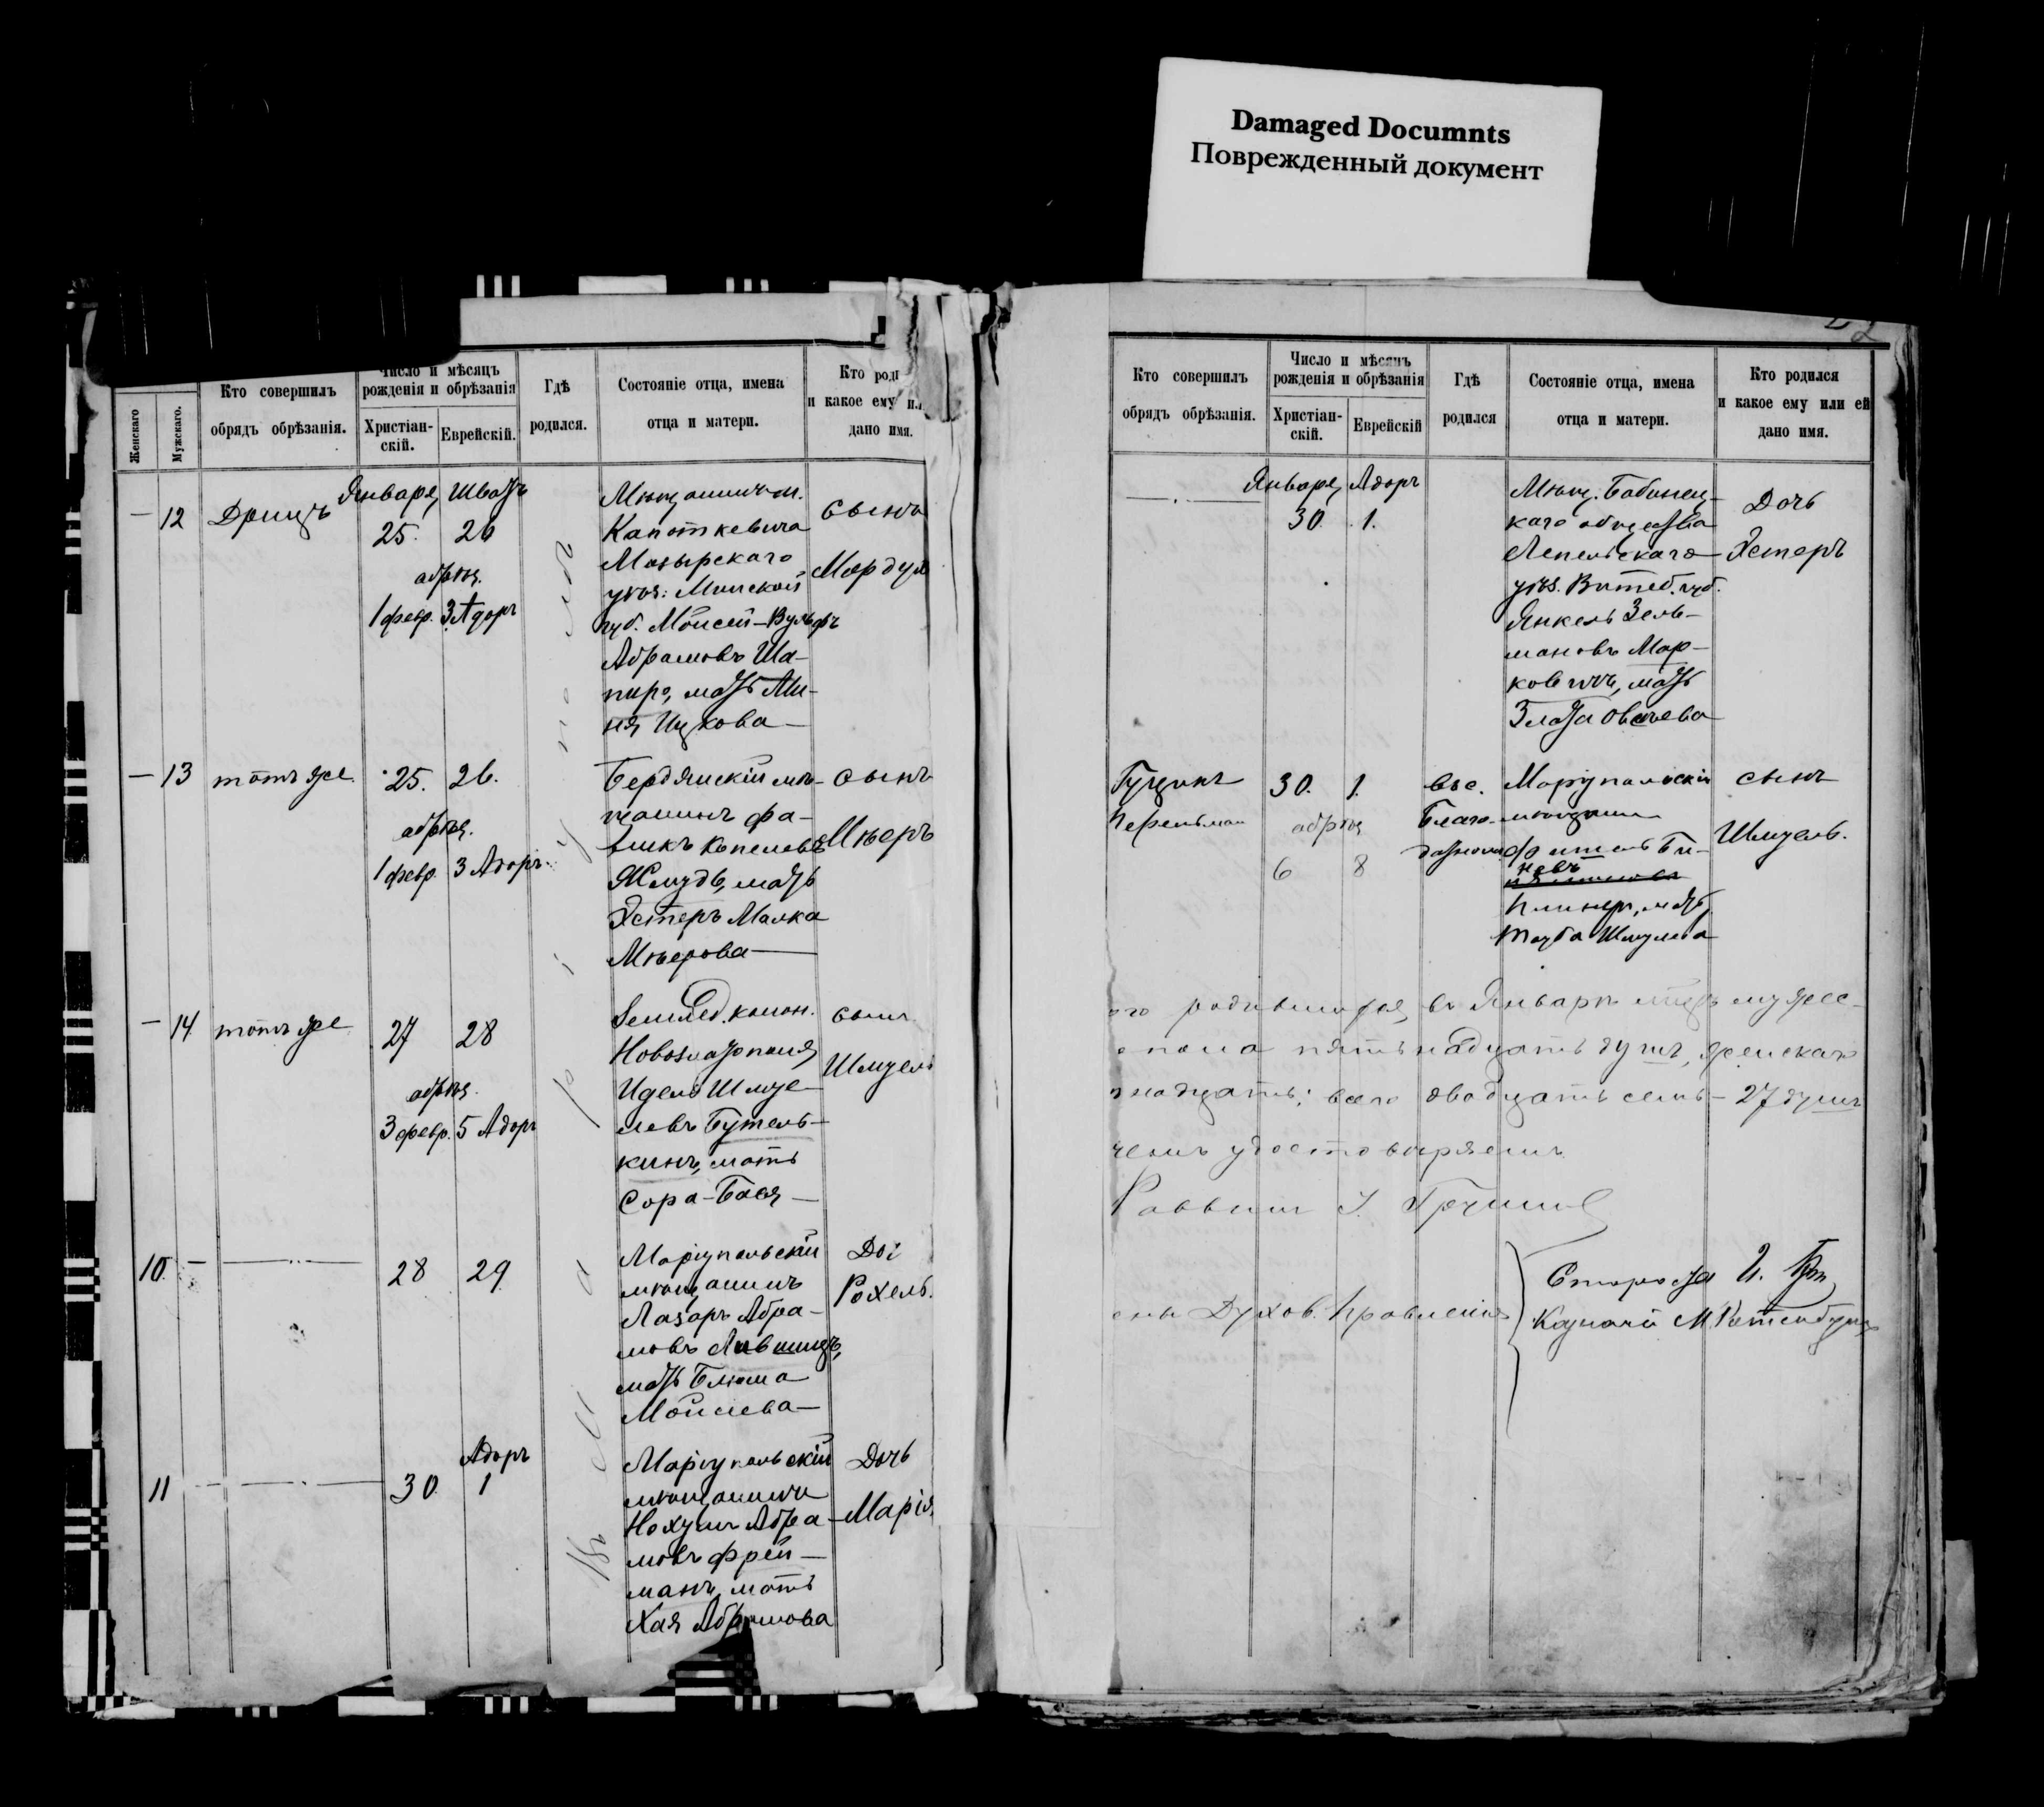 Damaged Documnts
Поврежденный документ
Женскаго
Мужскаго.
Кто совершилъ
обрядъ обрѣзанія.
Число и мѣсяцъ
рожденія и обрѣзанія
Христіан-
скій.
Еврейскій.
Гдѣ
родился.
Состояніе отца, имена
отца и матери.
Кто род
и какое ему ил
дано имя.
— 12 Дрицъ
Января Шватъ
25. 26
обрѣз.
1 февр. 3 Адоръ
Мѣщанинъ м.
Капоткевича
Мозырскаго
уѣз: Минской
губ. Мойсей-Вульфъ
Абрамовъ Ша-
пиро, мать Ми-
ня Ицкова—
сынъ
Мордух
— 13 тотъ же
25. 26.
обрѣз.
1 февр. 3 Адоръ
Бердянскій мѣ-
щанинъ Фа-
вишъ Копелевъ
Жмудь, мать
Эстеръ Малка
Мѣерова—
сынъ
Мѣеръ
— 14 тотъ же
27 28
обрѣз.
3 февр. 5 Адоръ
Землед. колон.
Новозлатополя
Идель Шмуе-
левъ Бутель-
кинъ, мать
Сора-Бася—
сынъ
Шмуель
10 —
28 29
Маріупольскій
мѣщанинъ
Лазарь Абра-
мовъ Лившицъ,
мать Блюма
Мойсеева—
Доч
Рохель.
11 —
Адоръ
30 1
Маріупольскій
мѣщанинъ
Нохумъ Абра-
мовъ Фрей-
манъ, мать
Хая Абрамова
Дочь
Марія
въ Маріуполѣ
22
Кто совершилъ
обрядъ обрѣзанія.
Число и мѣсяцъ
рожденія и обрѣзанія
Христіан-
скій.
Еврейскій
Гдѣ
родился
Состояніе отца, имена
отца и матери.
Кто родился
и какое ему или ей
дано имя.
Января Адоръ
30. 1.
Мѣщ. Бабинец-
каго общества
Лепельскаго
уѣз. Витеб. губ.
Янкель Зель-
мановъ Мар-
ковичъ, мать
Злата Овсеева
Дочь
Эстеръ
Перельман
30. 1.
обрѣз
6 8
въ с.
Благо-
датномъ
Маріупольскій
мѣщанинъ
новъ
мать
Тауба Шмулева
сынъ
Шмуель.
ого родившихся въ Январѣ мцѣ мужес-
пола пятьнадцать душъ, женскаго
надцать; всего двадцать семь— 27 душъ
чемъ удостовѣряемъ
Раввинъ
ены Духов. Правленія
Староста И.
Казначей М.